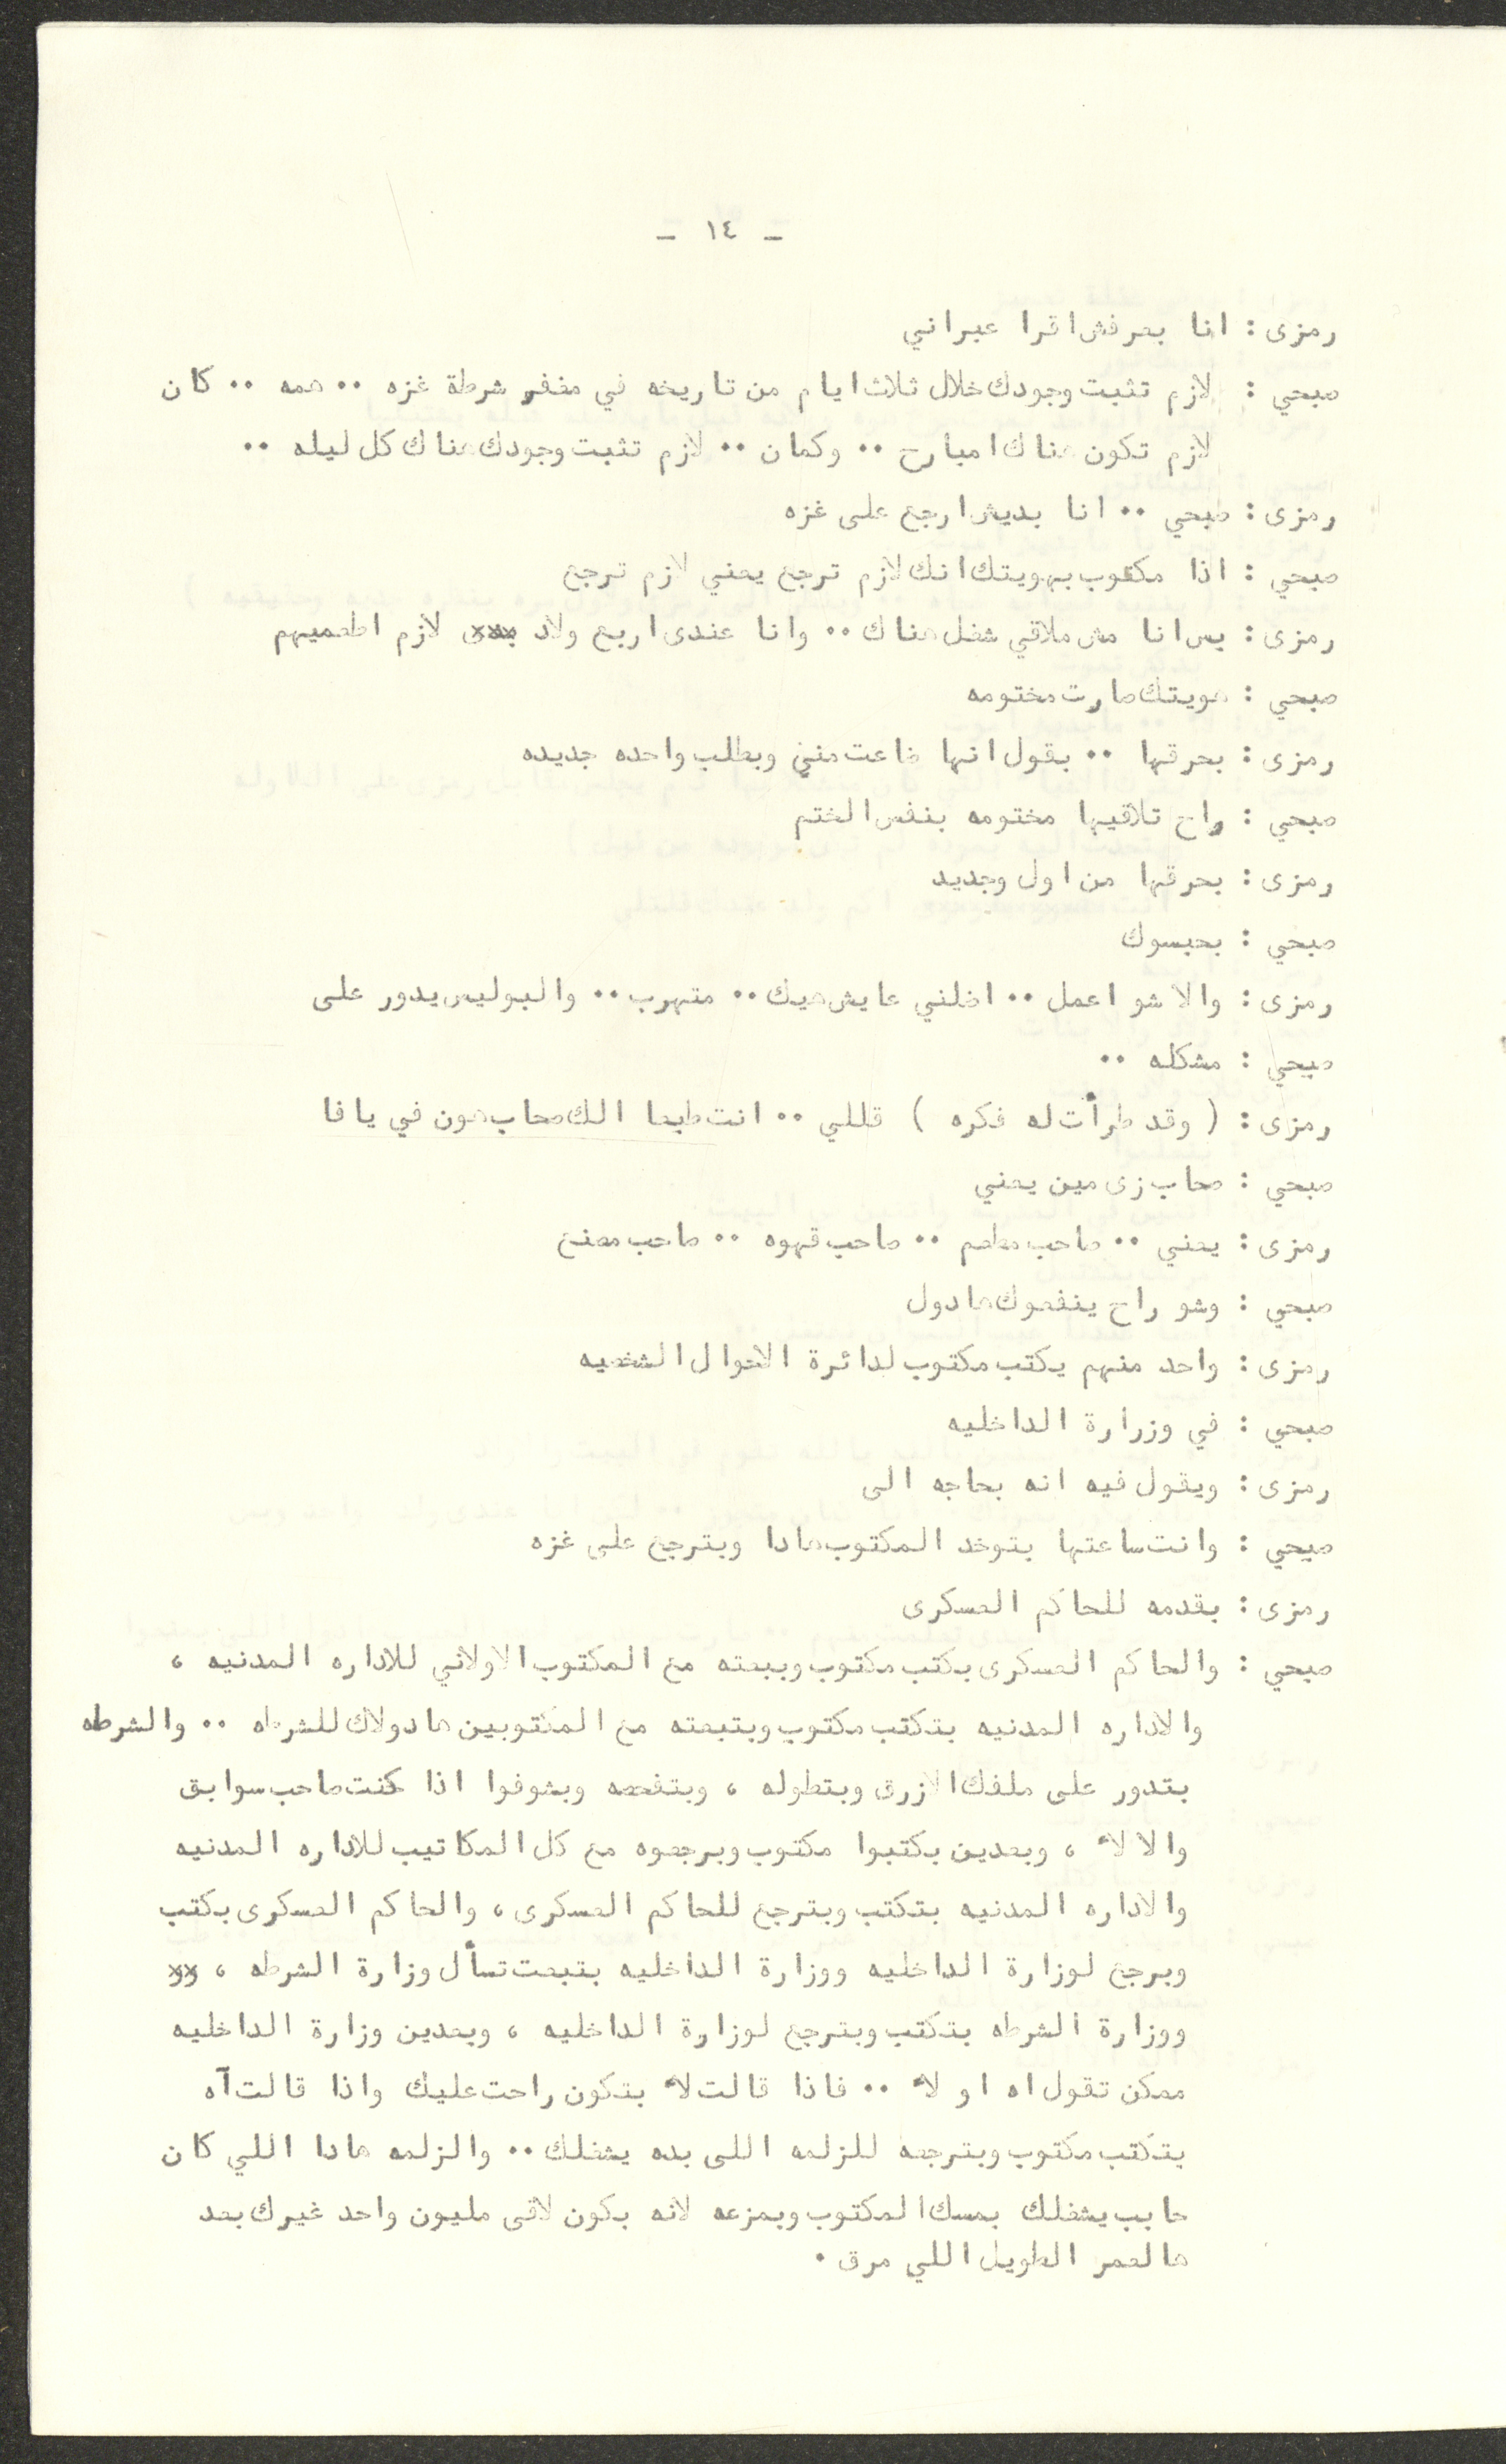 - ١٤ -
رمزى : انا بعرفش اقرا عبراني
صبحي : لازم تثبت وجودك خلال ثلاث ايام من تاريخه في مخفر شرطة غزه .. همه .. كان
لازم تكون هناك امبارح .. وكمان .. لازم تثبت وجودك هناك كل ليله ..
رمزى : صبحي .. انا بديش ارجع على غزه
صبحي : اذا مكتوب بهويتك انك لازم ترجع يعني لازم ترجع
رمزى : بس انا مش ملاقي شغل هناك .. وانا عندى اربع ولاد لازم اطعميهم
صبحي : هويتك صارت مختومه
رمزى : بحرقها .. بقول انها ضاعت مني وبطلب واحده جديده
صبحي : راح تلاقيها مختومه بنفس الختم
رمزى : بحرقها من اول وجديد
صبحي : بحبسوك
رمزى : والا شو اعمل .. اضلني عايش هيك .. متهرب .. والبوليس يدور على
صبحي : مشكله ..
رمزى : ( وقد طرأت له فكره ) قللي .. انت طبعا الك صحاب هون في يافا
صبحي : صحاب زى مين يعني
رمزى : يعني .. صاحب مطعم .. صاحب قهوه .. صاحب مصنع
صبحي : وشو راح ينفعوك هادول
رمزى : واحد منهم يكتب مكتوب لدائرة الاحوال الشخصيه
صبحي : في وزرارة الداخليه
رمزى : ويقول فيه انه بحاجه الى
صبحي : وانت ساعتها بتوخد المكتوب هادا وبترجع على غزه
رمزى : بقدمه للحاكم العسكرى
صبحي : والحاكم العسكرى بكتب مكتوب وببعته مع المكتوب الاولاني للاداره المدنيه ،
والاداره المدنيه بتكتب مكتوب وبتبعته مع المكتوبين هادولاك للشرطه .. والشرطه
بتدور على ملفك الازرق وبتطوله ، وبتفحصه وبشوفوا اذا كنت صاحب سوابق
والا لأ ، وبعدين بكتبوا مكتوب وبرجعوه مع كل المكاتيب للاداره المدنيه
والاداره المدنيه بتكتب وبترجع للحاكم العسكرى ، والحاكم العسكرى بكتب
وبرجع لوزارة الداخليه ووزارة الداخليه بتبعت تسأل وزارة الشرطه ،
ووزارة الشرطه بتكتب وبترجع لوزارة الداخليه ، وبعدين وزارة الداخليه
ممكن تقول اه او لأ .. فاذا قالت لأ بتكون راحت عليك واذا قالت آه
بتكتب مكتوب وبترجعه للزلمه اللى بده يشغلك .. والزلمه هادا اللي كان
حابب يشغلك بمسك المكتوب وبمزعه لانه بكون لاقى مليون واحد غيرك بعد
هالعمر الطويل اللي مرق .